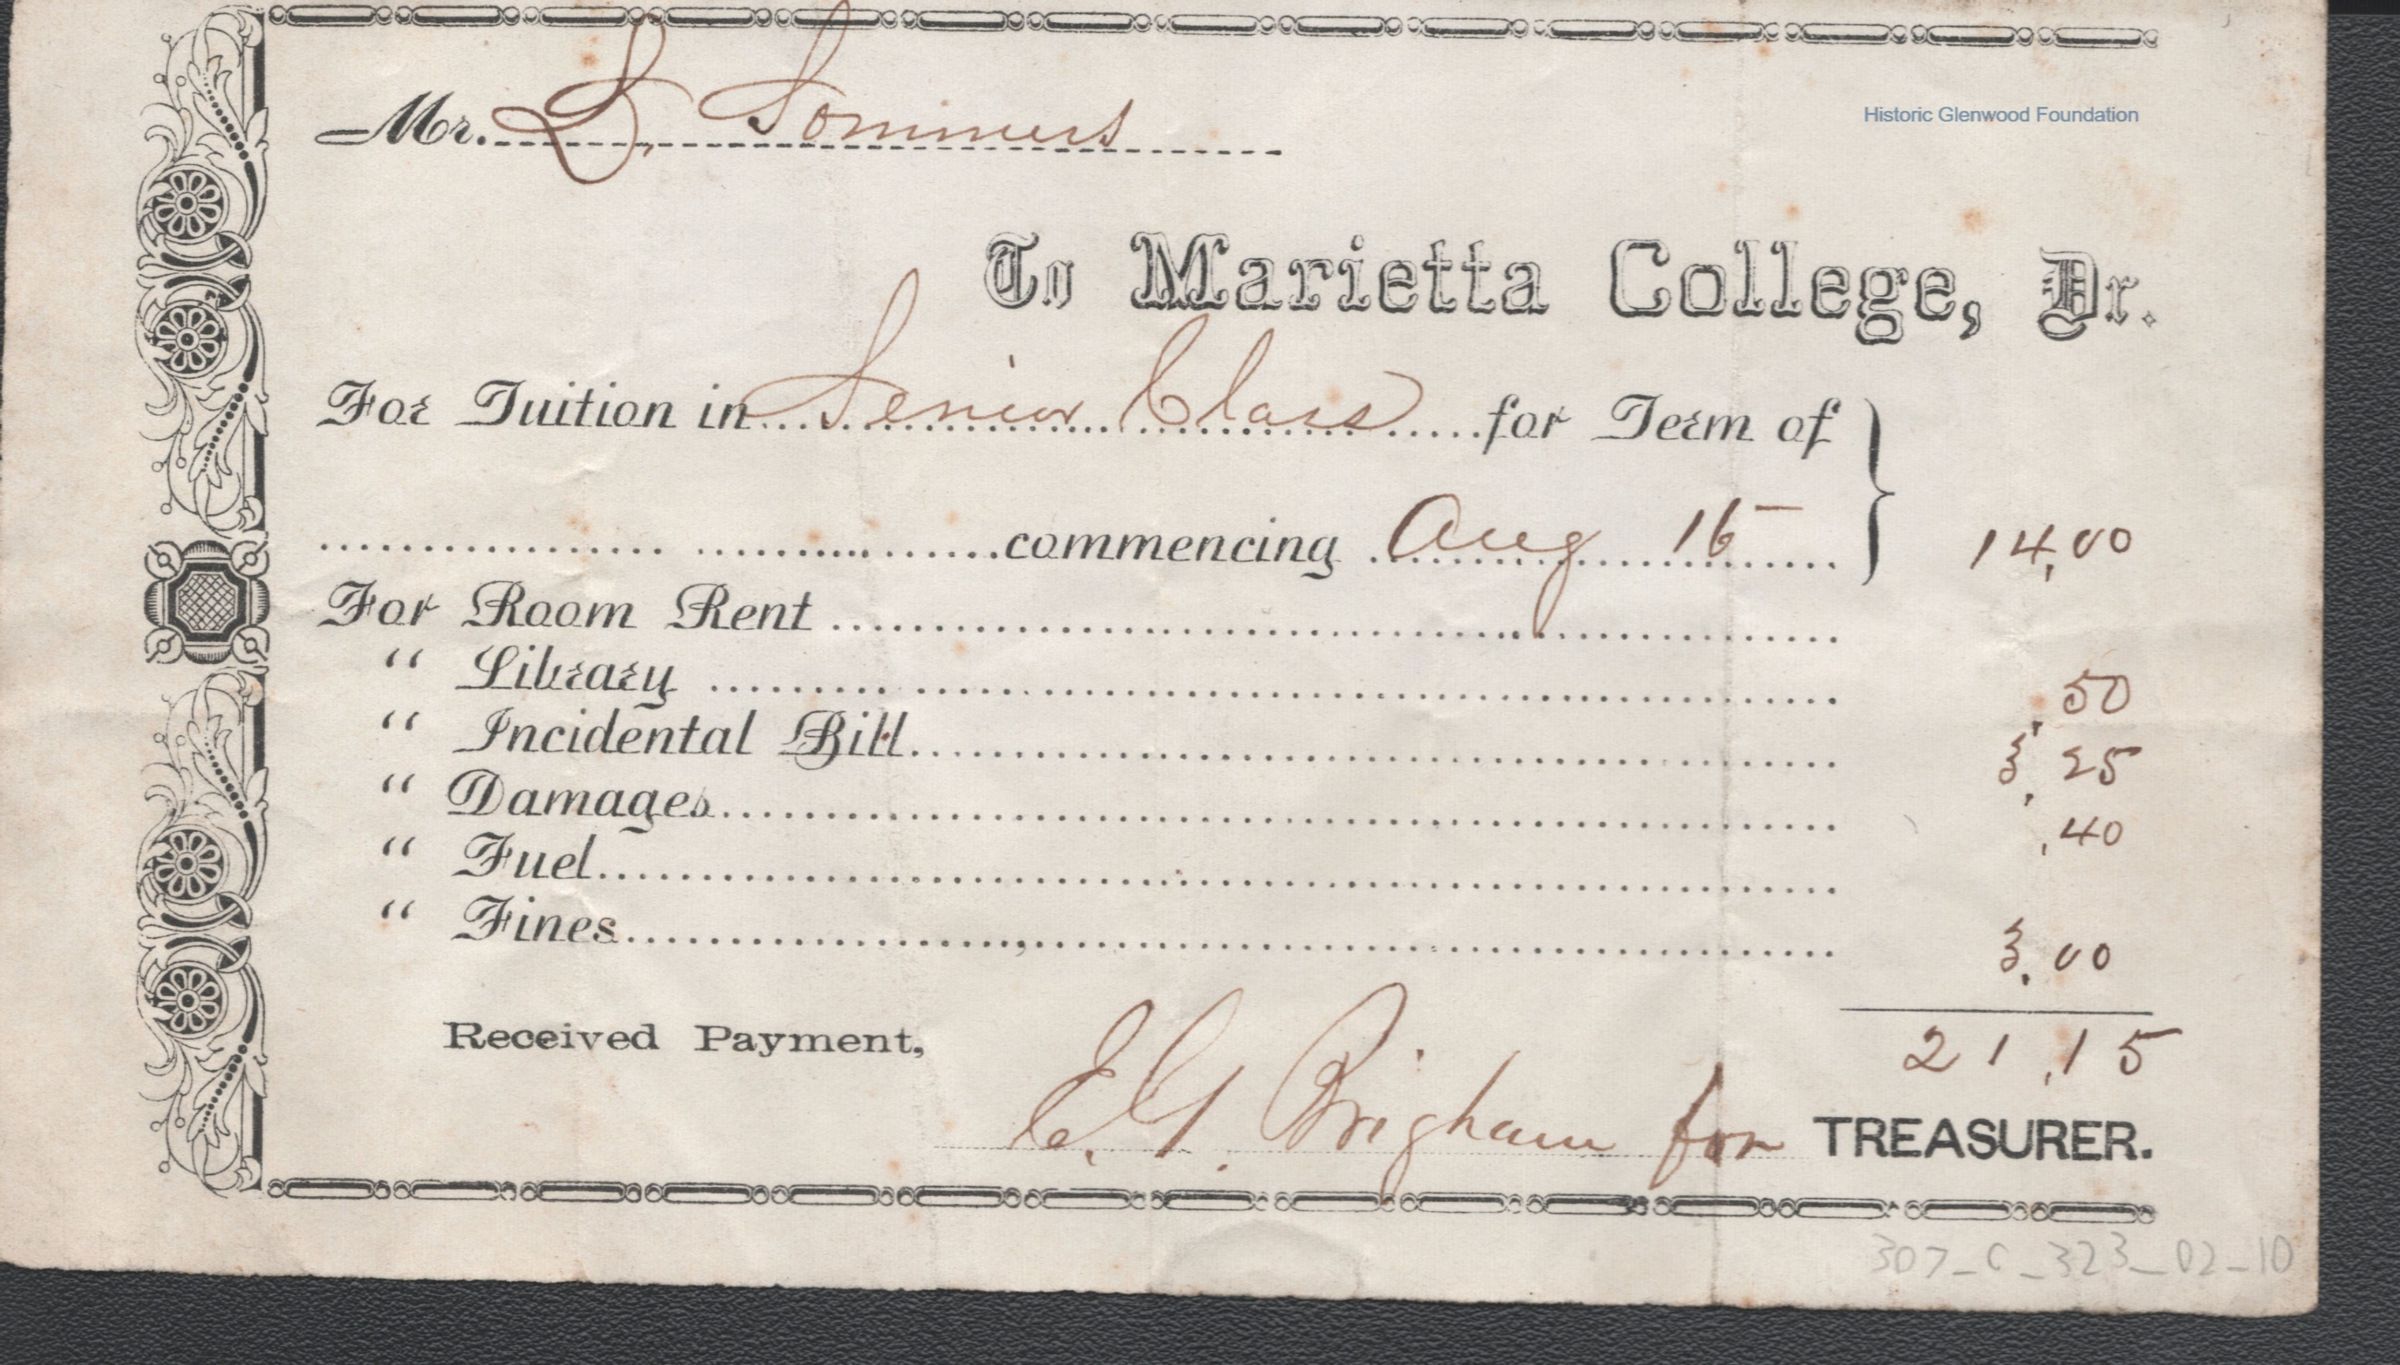 Mr. Sommers
Historic Glenwood Foundation
To Marietta College, Dr.
For Tuition in Senior Class for Term of
commencing Aug 15 14.00
For Room Rent
" Library .50
" Incidental Bill 3.25
" Damages .40
" Fuel
" Fines 3.00
21.15
Received Payment,
E. G. Brigham for TREASURER.
307_C_323_02-10